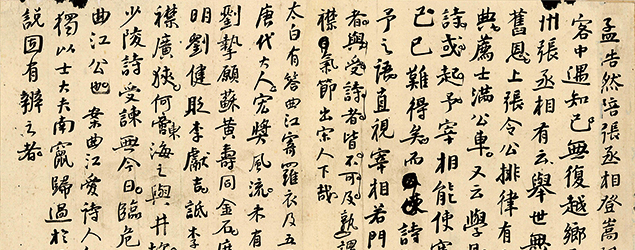 孟浩然陪張丞相登嵩
客中遇知己無復越鄉
州張丞相有云舉世無
舊恩上張令公排律有
典薦士滿公車又云學
詩或起予宰相能使
己已難得矣而使詩
予之語直視宰相若門
者與受詩者皆不可及孰謂
襟氣節出宋人下哉
太白有答曲江寄羅衣及五
唐代大人宏獎風流未有
劉摯願蘇黃壽同金石
明劉健貶李獻吉詆李
襟廣狹何啻海之與井
少陵詩受諫無今日臨危
曲江公也案曲江愛詩人
獨以士大夫南竄歸過於
說固有辨之者